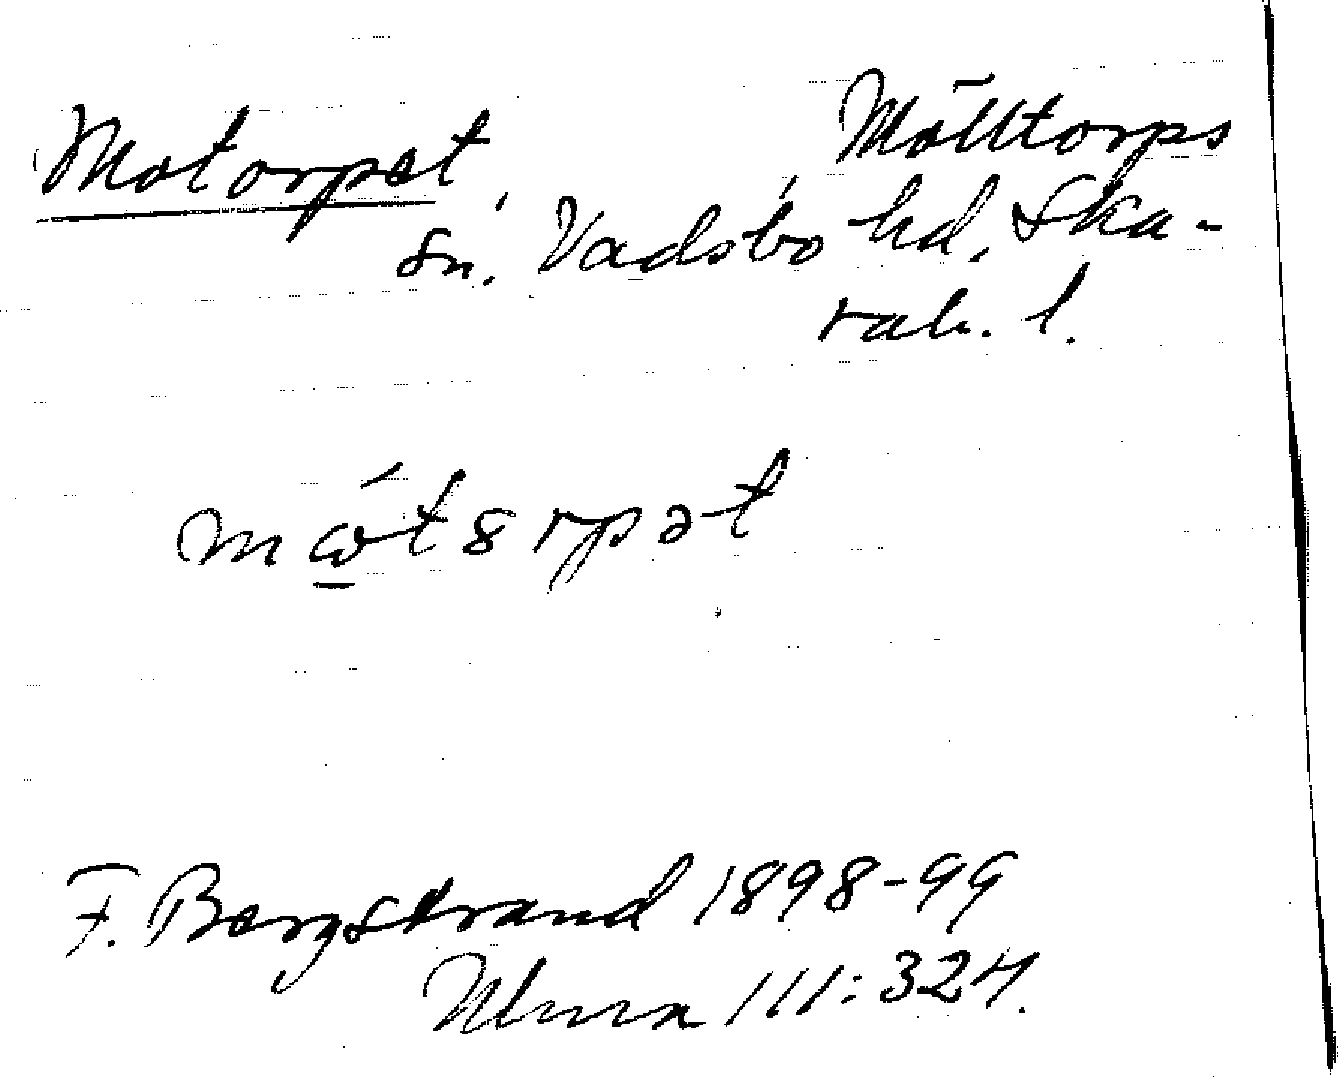 Motorpet, Mölltorps
sn. Vadsbo hd, Ska-
rab. l.
F. Bergstrand 1898-99
111:324.